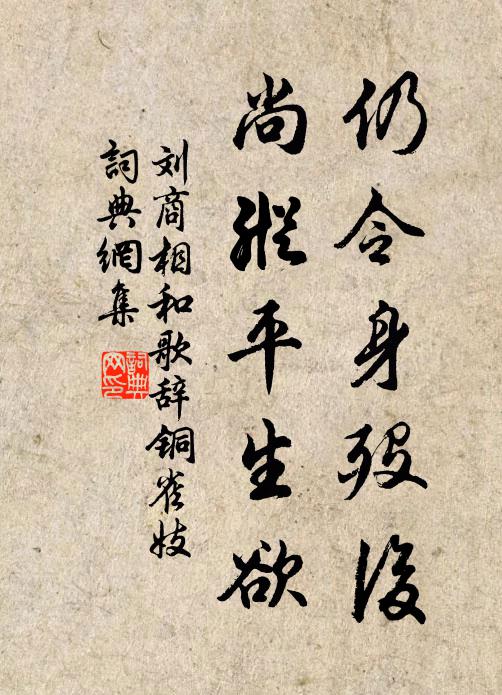 仍令身殁後
尚縱平生欲
刘商相和歌辞铜雀妓
詞典網集
詞典网印